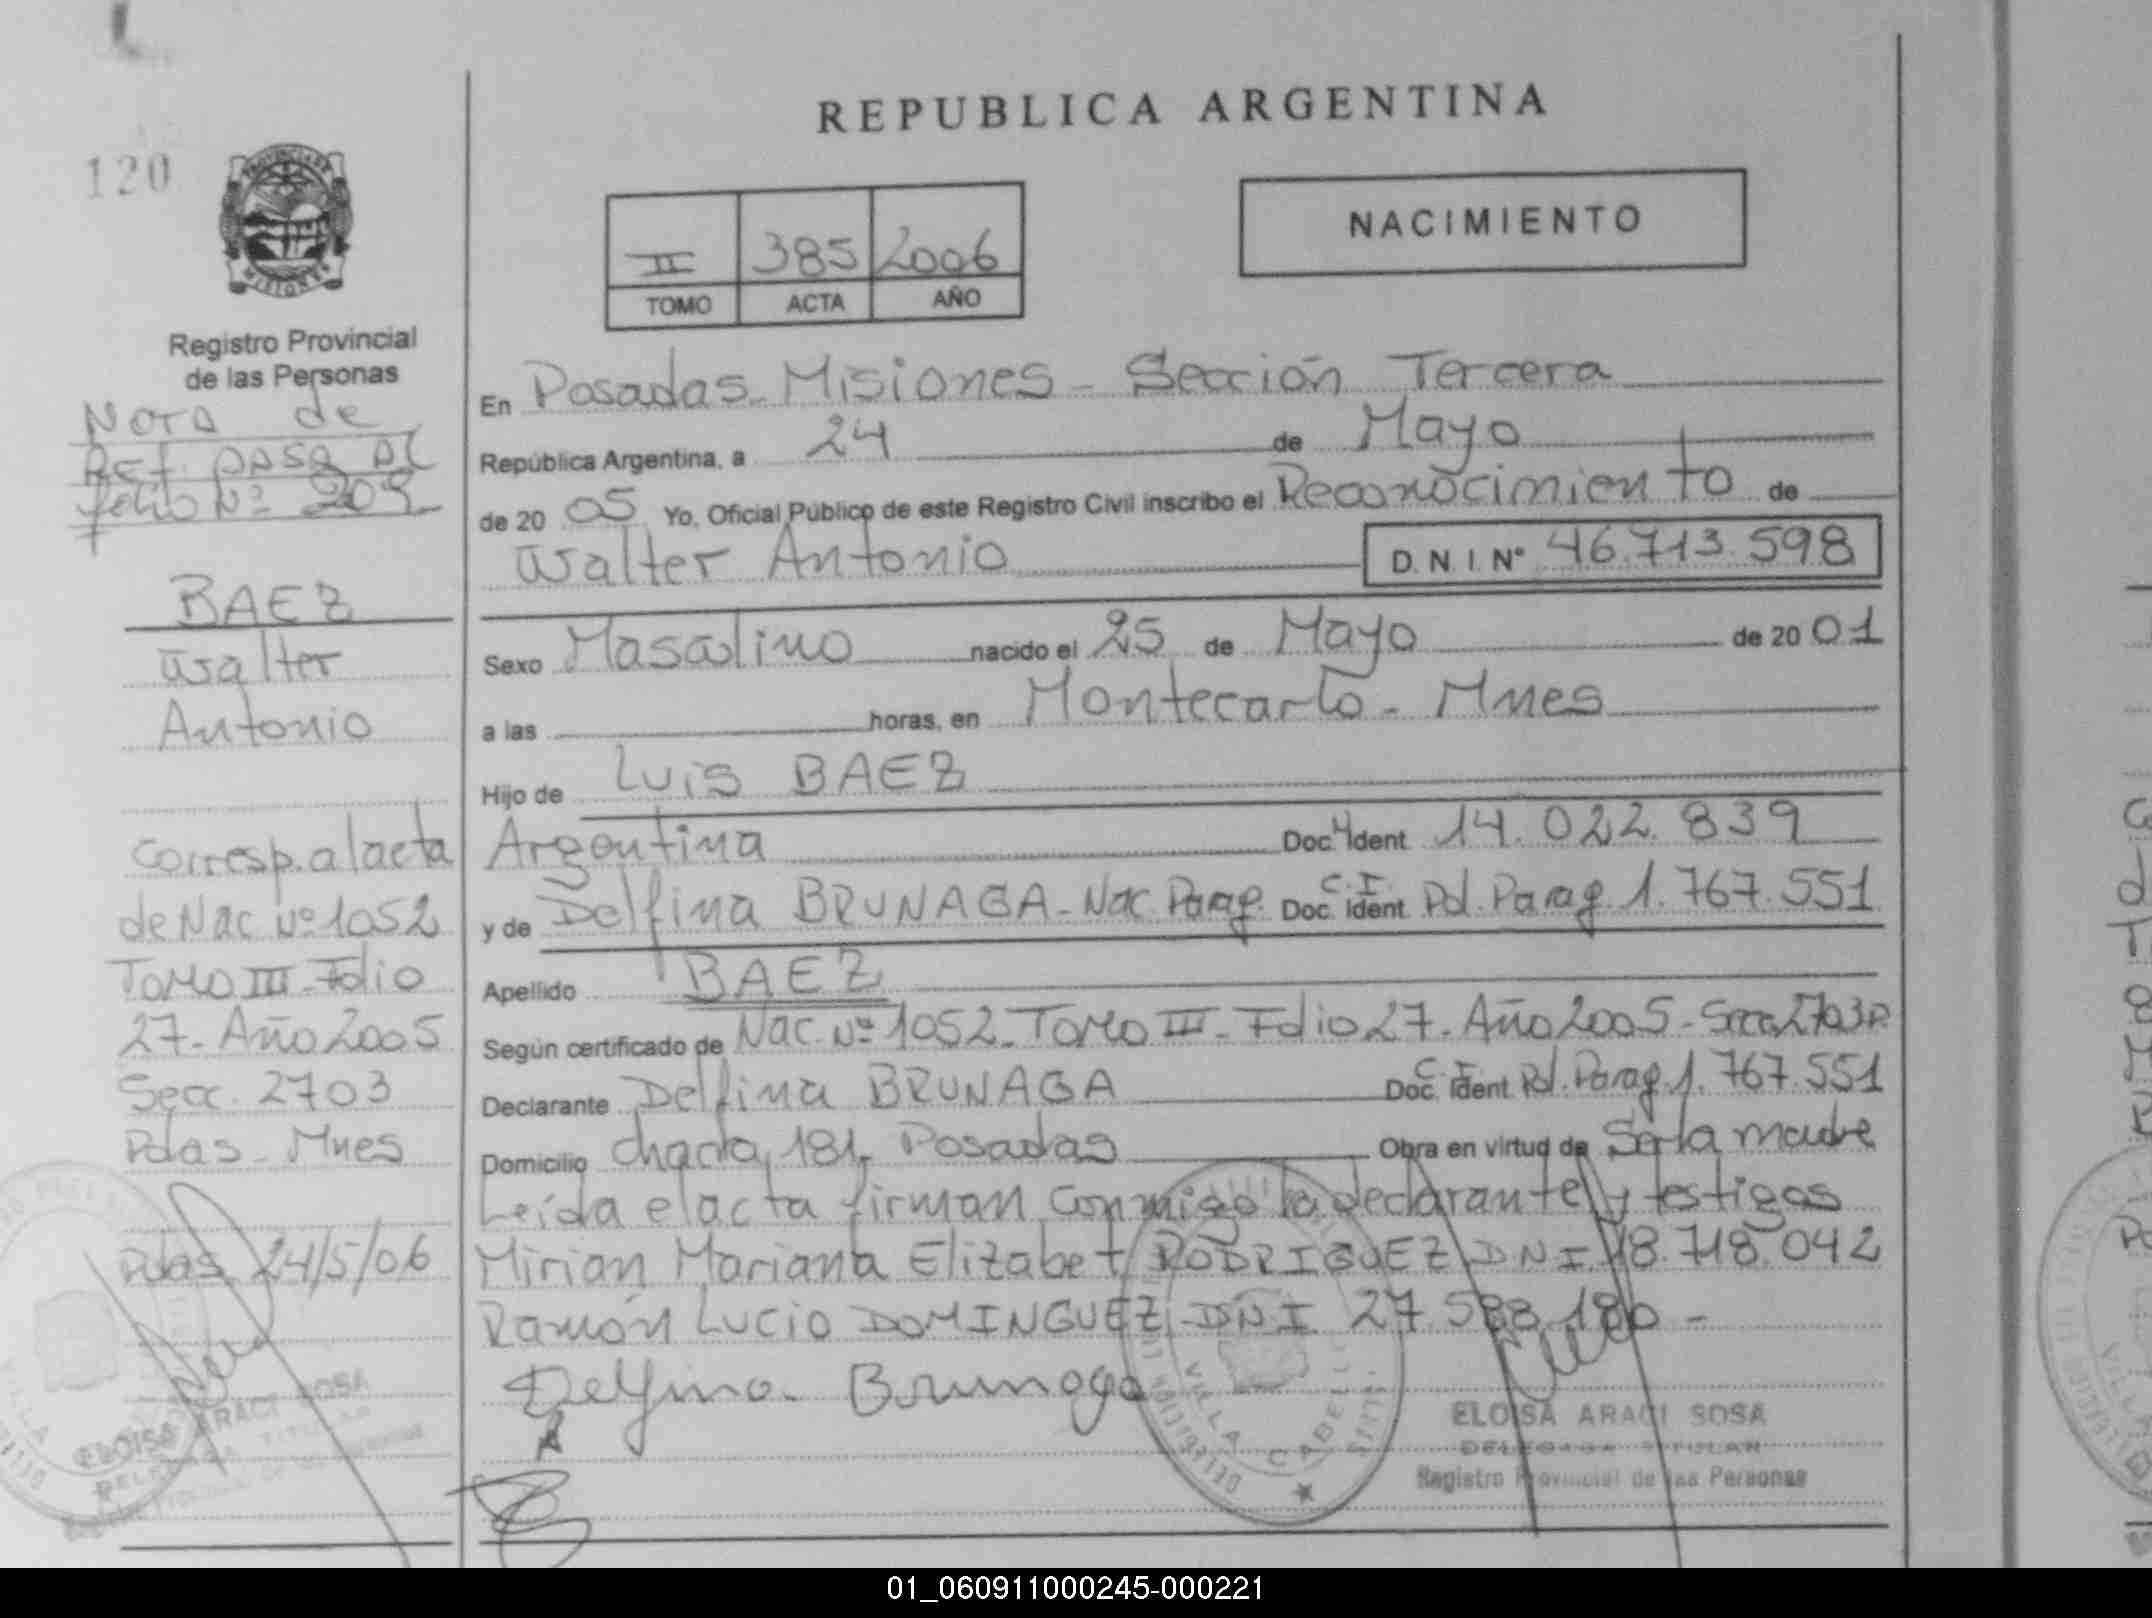 REPUBLICA ARGENTINA
120
PROVINCIA DE
MISIONES
II 385 2006
TOMO ACTA AÑO
NACIMIENTO
Registro Provincial
de las Personas
Nota de
Ref. pasa al
folio Nº 209
BAEZ
Walter
Antonio
Corresp. a l acta
de Nac Nº 1052
Tomo III - Folio
27 - Año 2005
Secc. 2703
Pdas - Mnes
Pdas 24/5/06
ELOISA ARACI SOSA
DELEGADA TITULAR
En Posadas - Misiones - Sección Tercera
República Argentina, a 24 de Mayo
de 20 05 Yo, Oficial Público de este Registro Civil inscribo el Reconocimiento de
Walter Antonio D.N.I. Nº 46.713.598
Sexo Masculino nacido el 25 de Mayo de 20 01
a las horas, en Montecarlo - Mnes
Hijo de Luis BAEZ
Argentina Doc. Ident 14.022.839
y de Delfina BRUNAGA - Nac Parag. C.I. Doc. Ident Pol. Parag 1.767.551
Apellido BAEZ
Según certificado de Nac. Nº 1052 - Tomo III - Folio 27 - Año 2005 - Secc 2703 P.
Declarante Delfina BRUNAGA C.I. Doc. Ident Pol. Parag 1.767.551
Domicilio chacra 181 - Posadas Obra en virtud de Ser la madre
Leída el acta firman conmigo la declarante y testigos
Mirian Mariana Elizabet RODRIGUEZ DNI 18.718.042
Ramón Lucio DOMINGUEZ DNI 27.588.180 -
Delfina Brunaga
VILLA CABELLO
ELOISA ARACI SOSA
DELEGADA TITULAR
Registro Provincial de las Personas
01_060911000245-000221